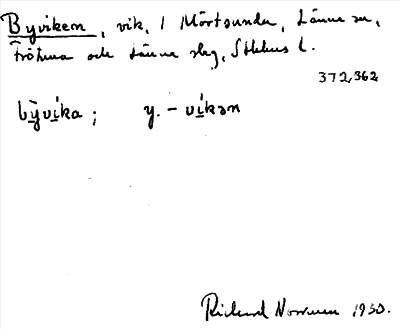 Byviken, vik, i Mörtsunda, Länna sn,
Frötuna och Länna skg, Sthlms l.
372,362
by̆vi̱ka; y. – vi̱kən
Rickard Norrman 1930.